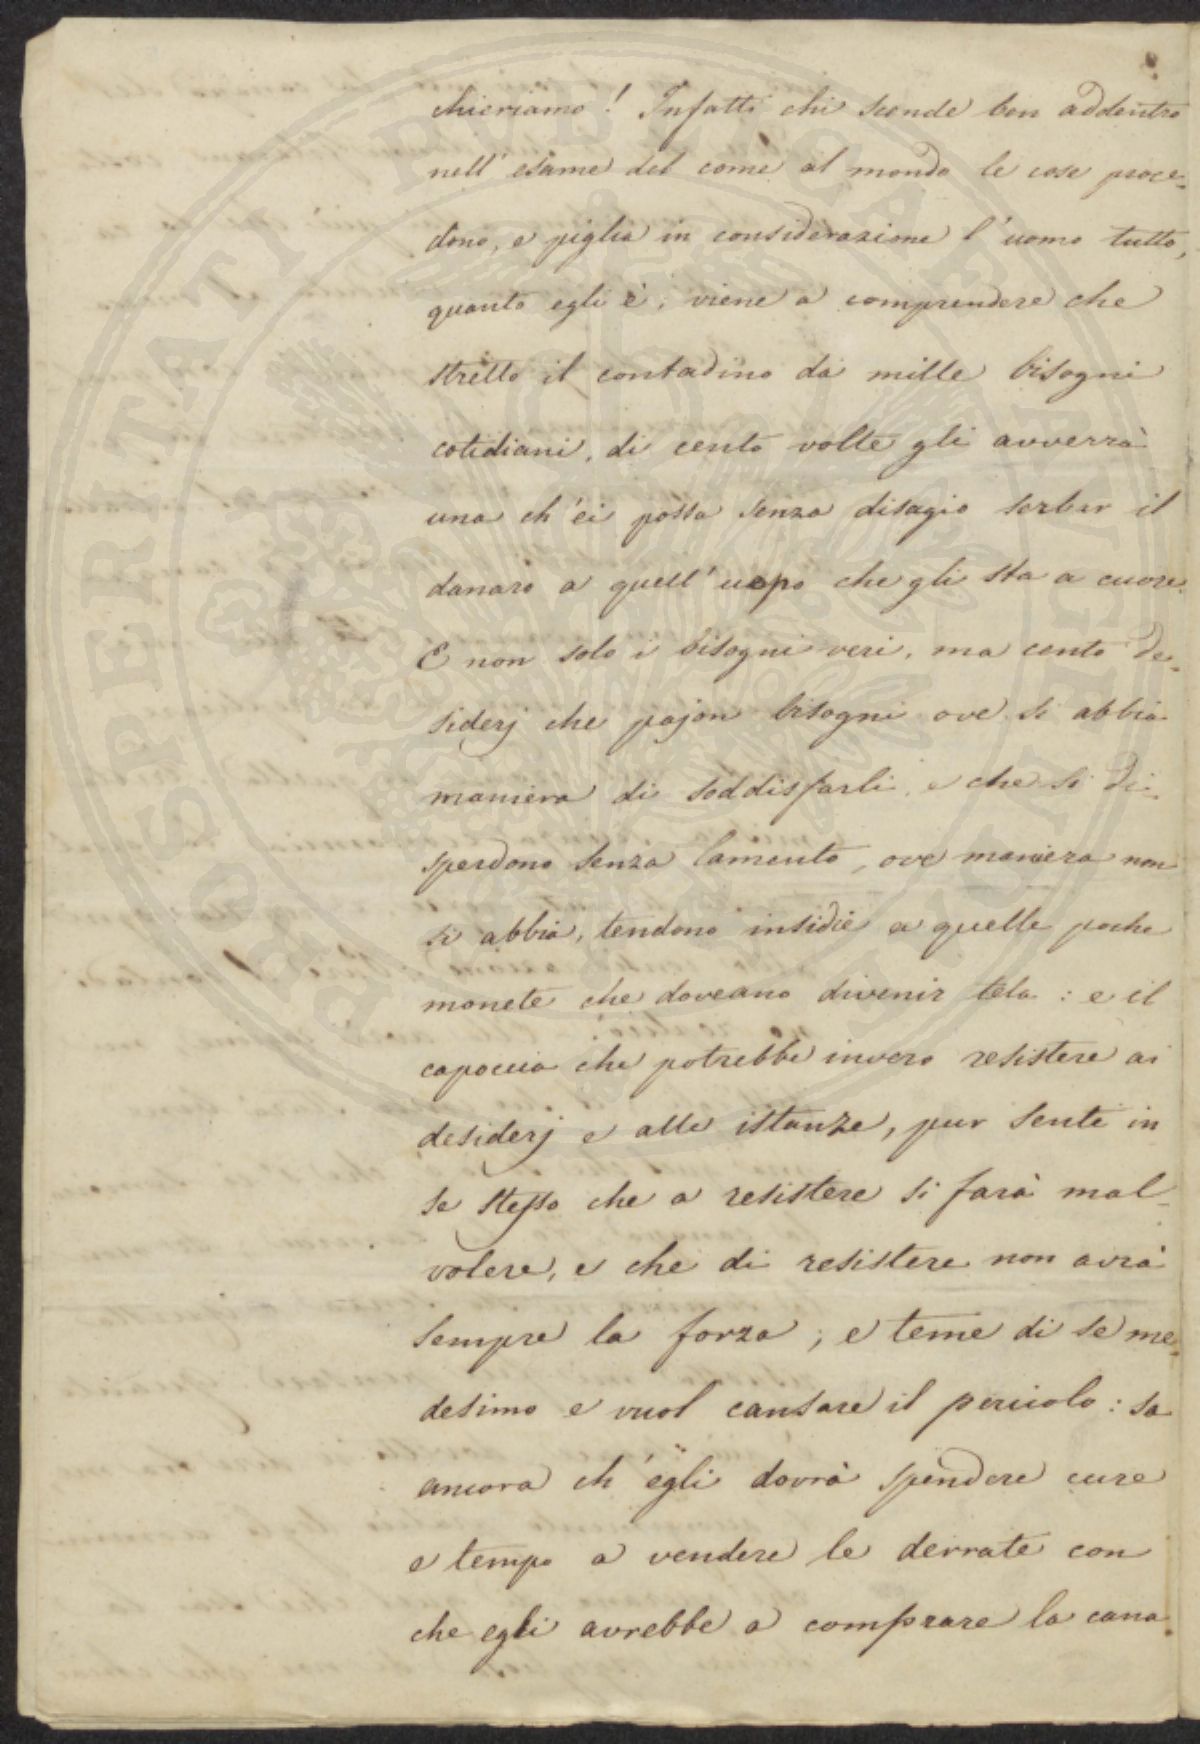 chieriamo! Infatti chi scende ben addentro
nell'esame del come al mondo le cose proce-
dono, e piglia in considerazione l'uomo tutto,
quanto egli è, viene a comprendere che
stretto il contadino da mille bisogni
cotidiani, di cento volte gli avverrà
una ch'ei possa senza disagio serbar il
danaro a quell'uopo che gli sta a cuore.
E non solo i bisogni veri, ma cento de-
siderj che pajon bisogni ove si abbia
maniera di soddisfarli, e che si di-
sperdono senza lamento, ove maniera non
si abbia, tendono insidie a quelle poche
monete che doveano divenir tela: e il
capoccia che potrebbe invero resistere ai
desiderj e alle istanze, pur sente in
se stesso che a resistere si farà mal-
volere, e che di resistere non avrà
sempre la forza; e teme di se me-
desimo e vuol cansare il pericolo: sa
ancora ch'egli dovrà spendere cure
e tempo a vendere le derrate con
che egli avrebbe a comprare la cana-
PROSPERITATI PVBLICAE AVGENDAE